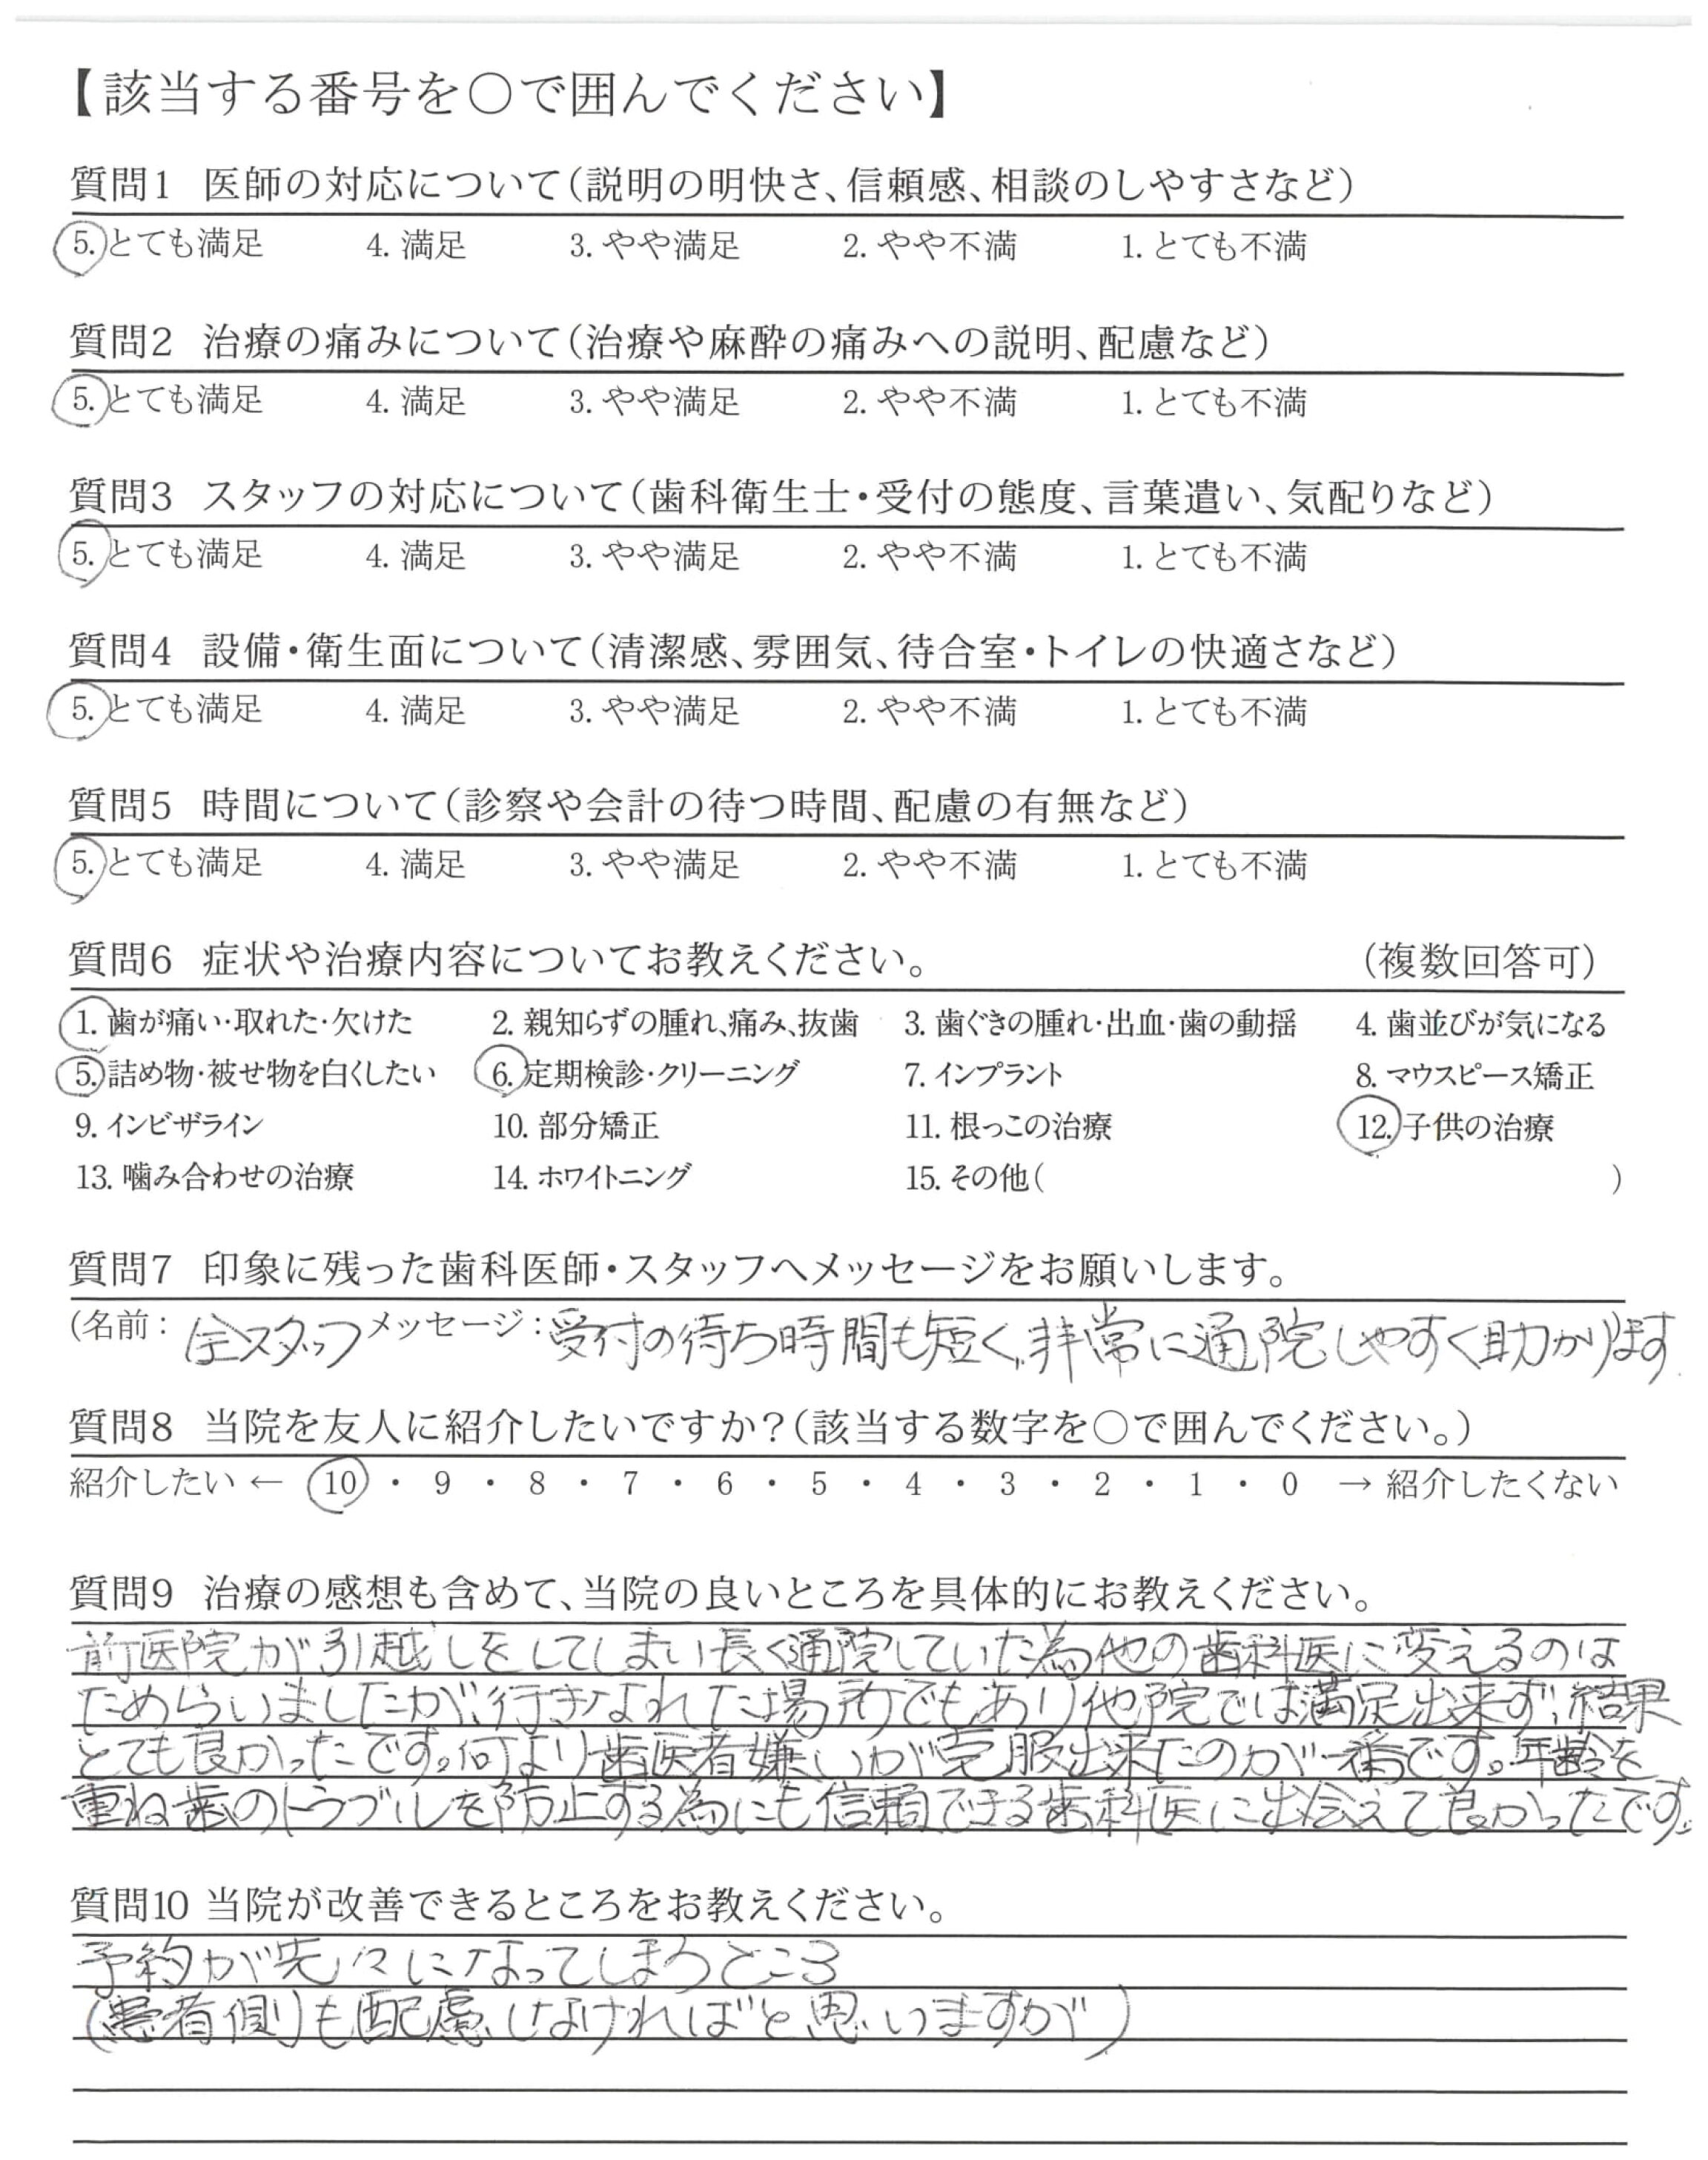 【該当する番号を○で囲んでください】
質問1 医師の対応について(説明の明快さ、信頼感、相談のしやすさなど)
5. とても満足 4. 満足 3. やや満足 2. やや不満 1. とても不満
質問2 治療の痛みについて(治療や麻酔の痛みへの説明、配慮など)
5. とても満足 4. 満足 3. やや満足 2. やや不満 1. とても不満
質問3 スタッフの対応について(歯科衛生士・受付の態度、言葉遣い、気配りなど)
5. とても満足 4. 満足 3. やや満足 2. やや不満 1. とても不満
質問4 設備・衛生面について(清潔感、雰囲気、待合室・トイレの快適さなど)
5. とても満足 4. 満足 3. やや満足 2. やや不満 1. とても不満
質問5 時間について(診察や会計の待つ時間、配慮の有無など)
5. とても満足 4. 満足 3. やや満足 2. やや不満 1. とても不満
質問6 症状や治療内容についてお教えください。 (複数回答可)
1. 歯が痛い・取れた・欠けた 2. 親知らずの腫れ、痛み、抜歯 3. 歯ぐきの腫れ・出血・歯の動揺 4. 歯並びが気になる
5. 詰め物・被せ物を白くしたい 6. 定期検診・クリーニング 7. インプラント 8. マウスピース矯正
9. インビザライン 10. 部分矯正 11. 根っこの治療 12. 子供の治療
13. 噛み合わせの治療 14. ホワイトニング 15. その他( )
質問7 印象に残った歯科医師・スタッフへメッセージをお願いします。
(名前: 全スタッフ メッセージ:受付の待ち時間も短く、非常に通院しやすく助かります
質問8 当院を友人に紹介したいですか?(該当する数字を○で囲んでください。)
紹介したい ← 10 ・ 9 ・ 8 ・ 7 ・ 6 ・ 5 ・ 4 ・ 3 ・ 2 ・ 1 ・ 0 → 紹介したくない
質問9 治療の感想も含めて、当院の良いところを具体的にお教えください。
前医院が引越しをしてしまい長く通院していた為他の歯科医に変えるのは
ためらいましたが、行きなれた場所でもあり他院では満足出来ず、結果
とても良かったです。何より歯医者嫌いが克服出来たのが一番です。年齢を
重ね歯のトラブルを防止する為にも信頼できる歯科医に出会えて良かったです。
質問10 当院が改善できるところをお教えください。
予約が先々になってしまうところ
(患者側も配慮しなければと思いますが)